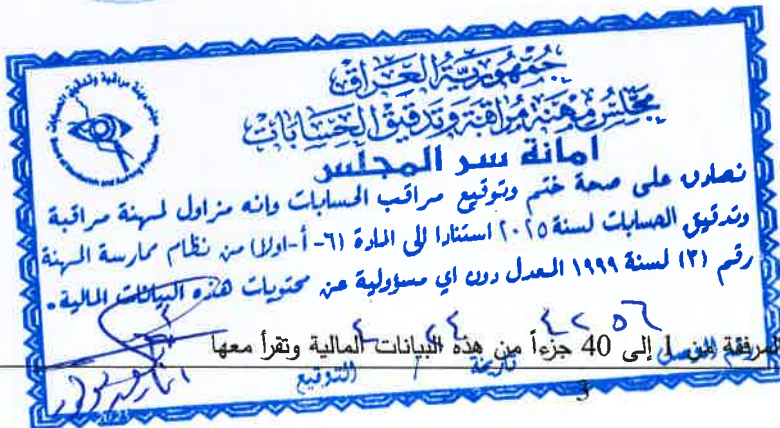 جمهورية العراق
مجلس مهنة مراقبة وتدقيق الحسابات
امانة سر المجلس
نصادق على صحة ختم وتوقيع مراقب الحسابات وانه مزاول لمهنة مراقبة
وتدقيق الحسابات لسنة ٢٠٢٥ استنادا الى المادة (٦- أ-اولا) من نظام ممارسة المهنة
رقم (٣) لسنة ١٩٩٩ المعدل دون اي مسؤولية عن محتويات هذه البيانات المالية.
المرفقة من 1 إلى 40 جزءاً من هذه البيانات المالية وتقرأ معها
تاريخه / التوقيع
3